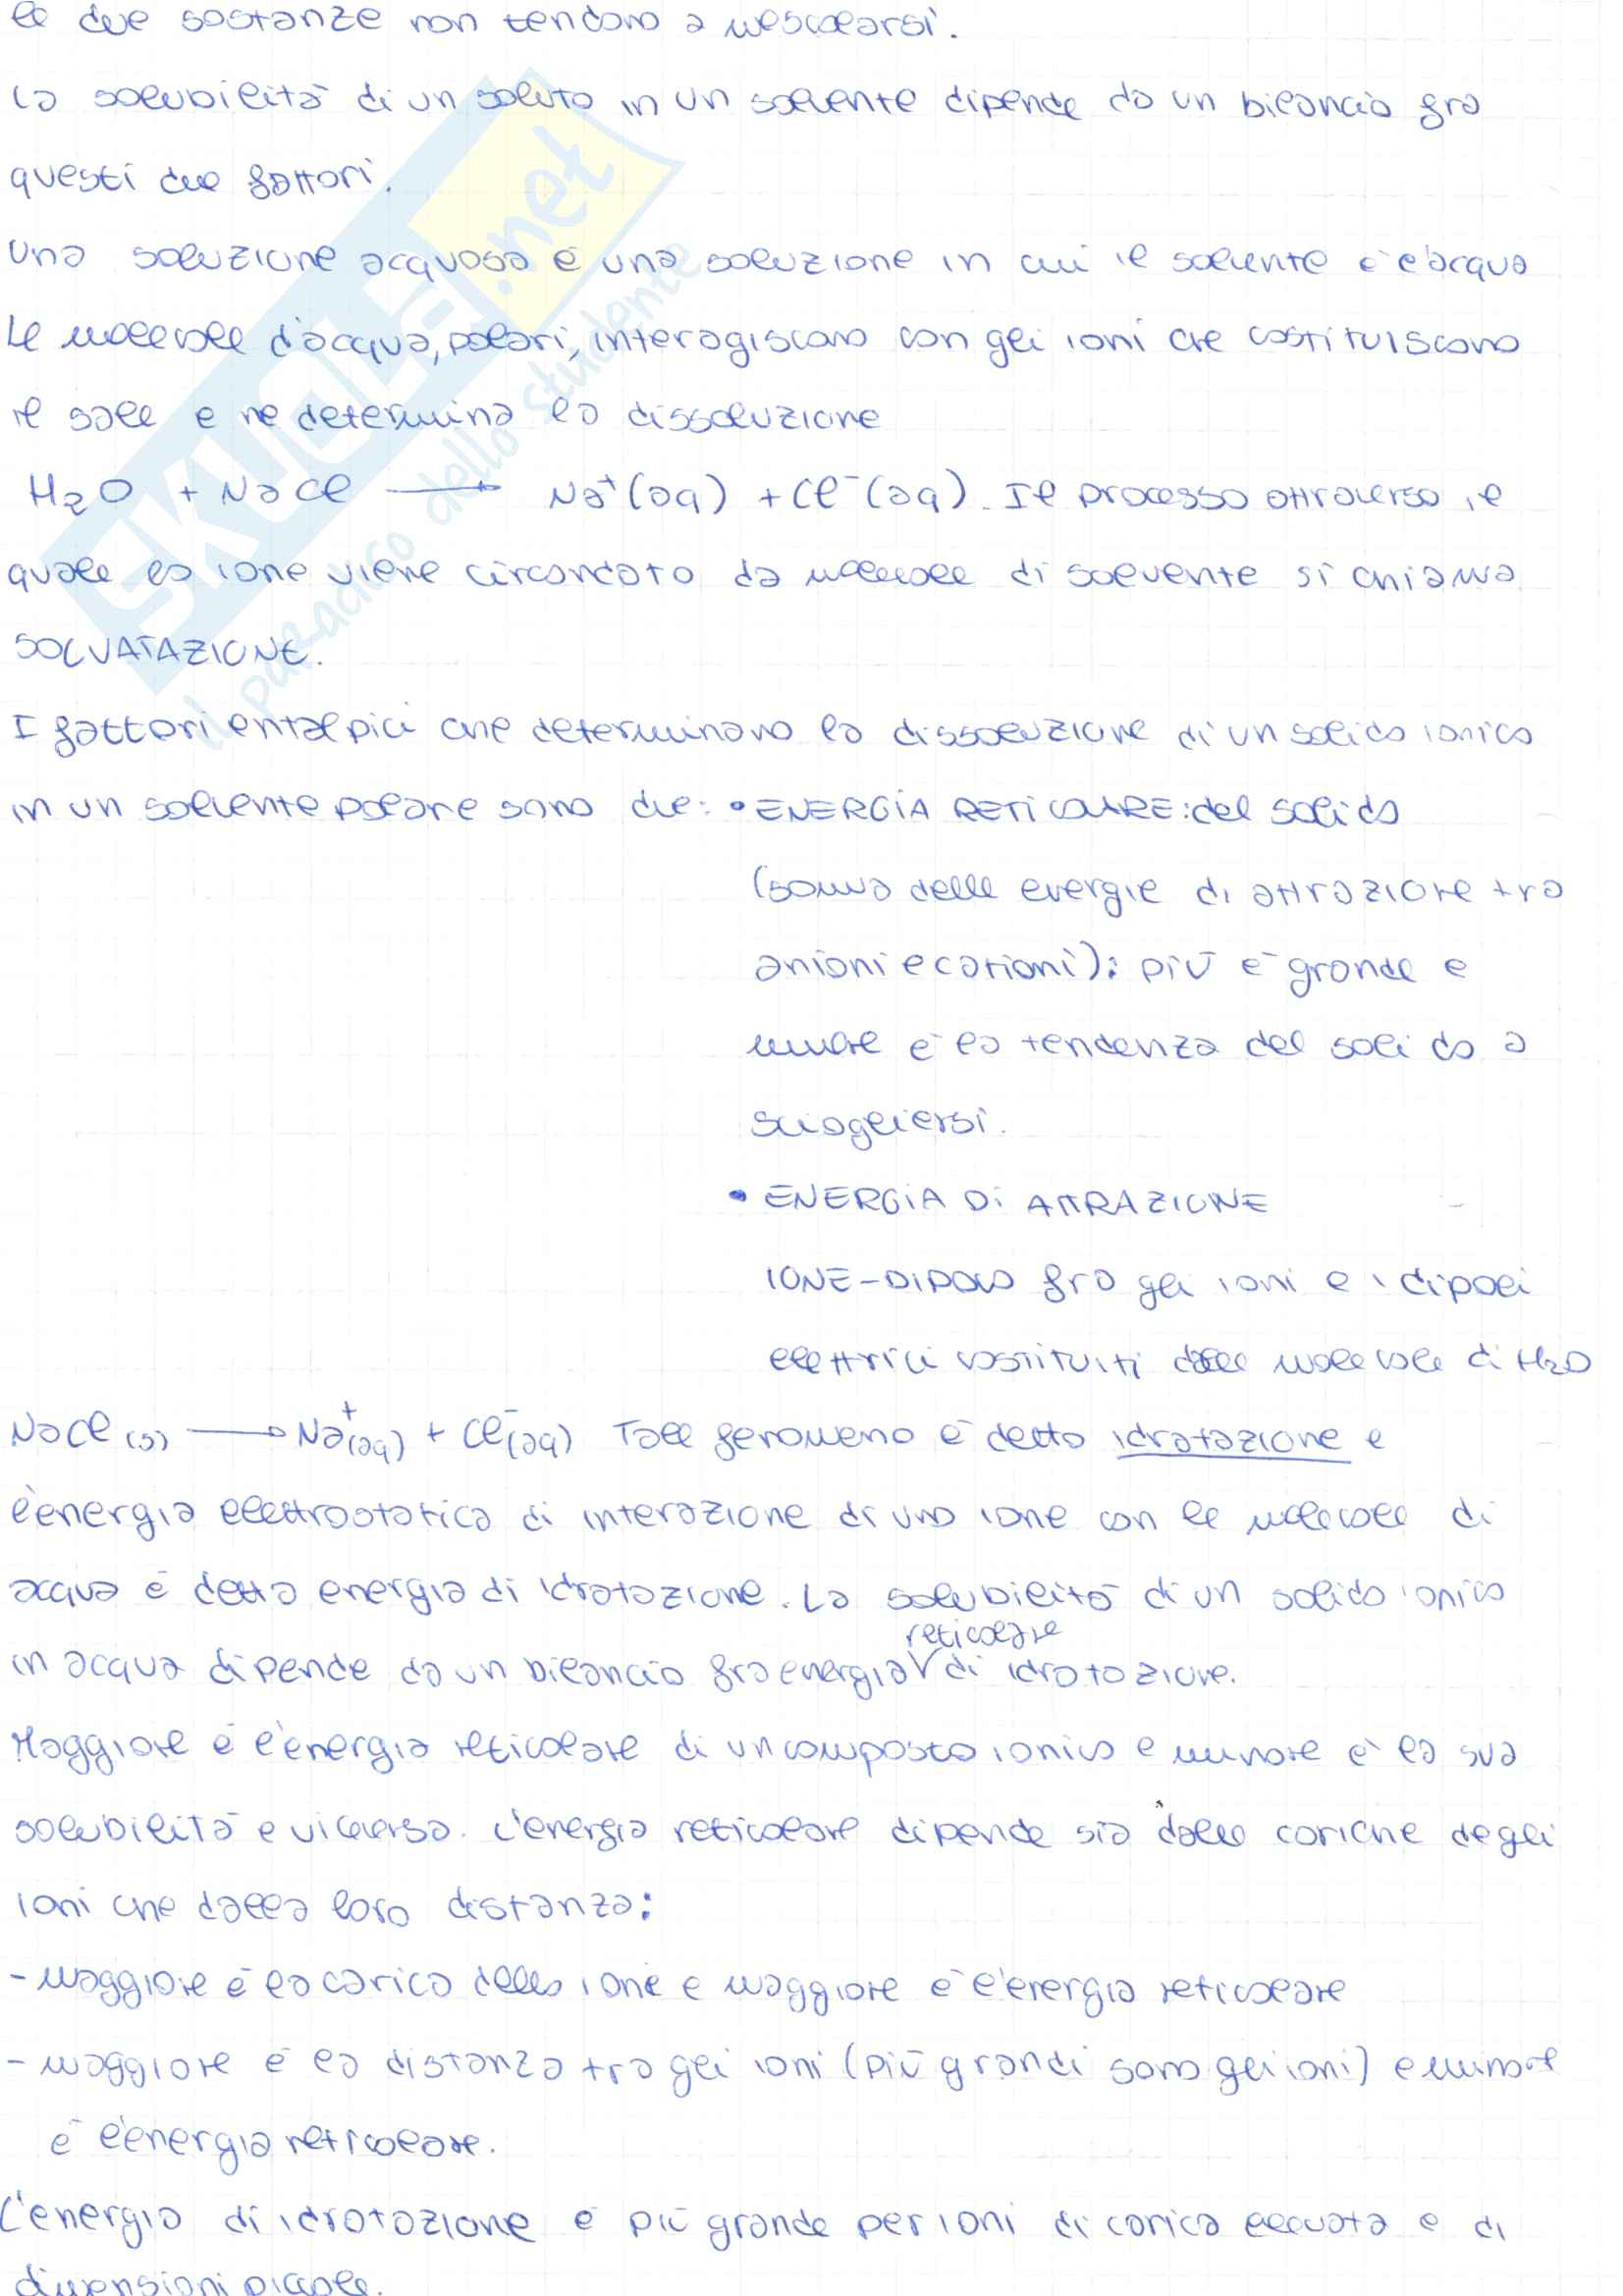 le due sostanze non tendono a mescolarsi.
La solubilità di un soluto in un solvente dipende da un bilancio fra
questi due fattori.
Una soluzione acquosa è una soluzione in cui il solvente è l'acqua
Le molecole d'acqua, polari, interagiscono con gli ioni che costituiscono
il sale e ne determina la dissoluzione
H2O + NaCl → Na+(aq) + Cl-(aq). Il processo attraverso il
quale lo ione viene circondato da molecole di solvente si chiama
SOLVATAZIONE.
I fattori entalpici che determinano la dissoluzione di un solido ionico
in un solvente polare sono due: • ENERGIA RETICOLARE: del solido
(somma delle energie di attrazione tra
anioni e cationi): più è grande e
minore è la tendenza del solido a
sciogliersi.
• ENERGIA DI ATTRAZIONE
IONE-DIPOLO fra gli ioni e i dipoli
elettrici costituiti dalle molecole di H2O
NaCl(s) → Na+(aq) + Cl-(aq) Tale fenomeno è detto idratazione e
l'energia elettrostatica di interazione di uno ione con le molecole di
acqua è detta energia di idratazione. La solubilità di un solido ionico
reticolare
in acqua dipende da un bilancio fra energia V di idratazione.
Maggiore è l'energia reticolare di un composto ionico e minore è la sua
solubilità e viceversa. L'energia reticolare dipende sia dalle cariche degli
ioni che dalla loro distanza:
- maggiore è la carica dello ione e maggiore è l'energia reticolare
- maggiore è la distanza tra gli ioni (più grandi sono gli ioni) e minore
è l'energia reticolare.
L'energia di idratazione è più grande per ioni di carica elevata e di
dimensioni piccole.
SKUOLA.net
il paradiso dello studente